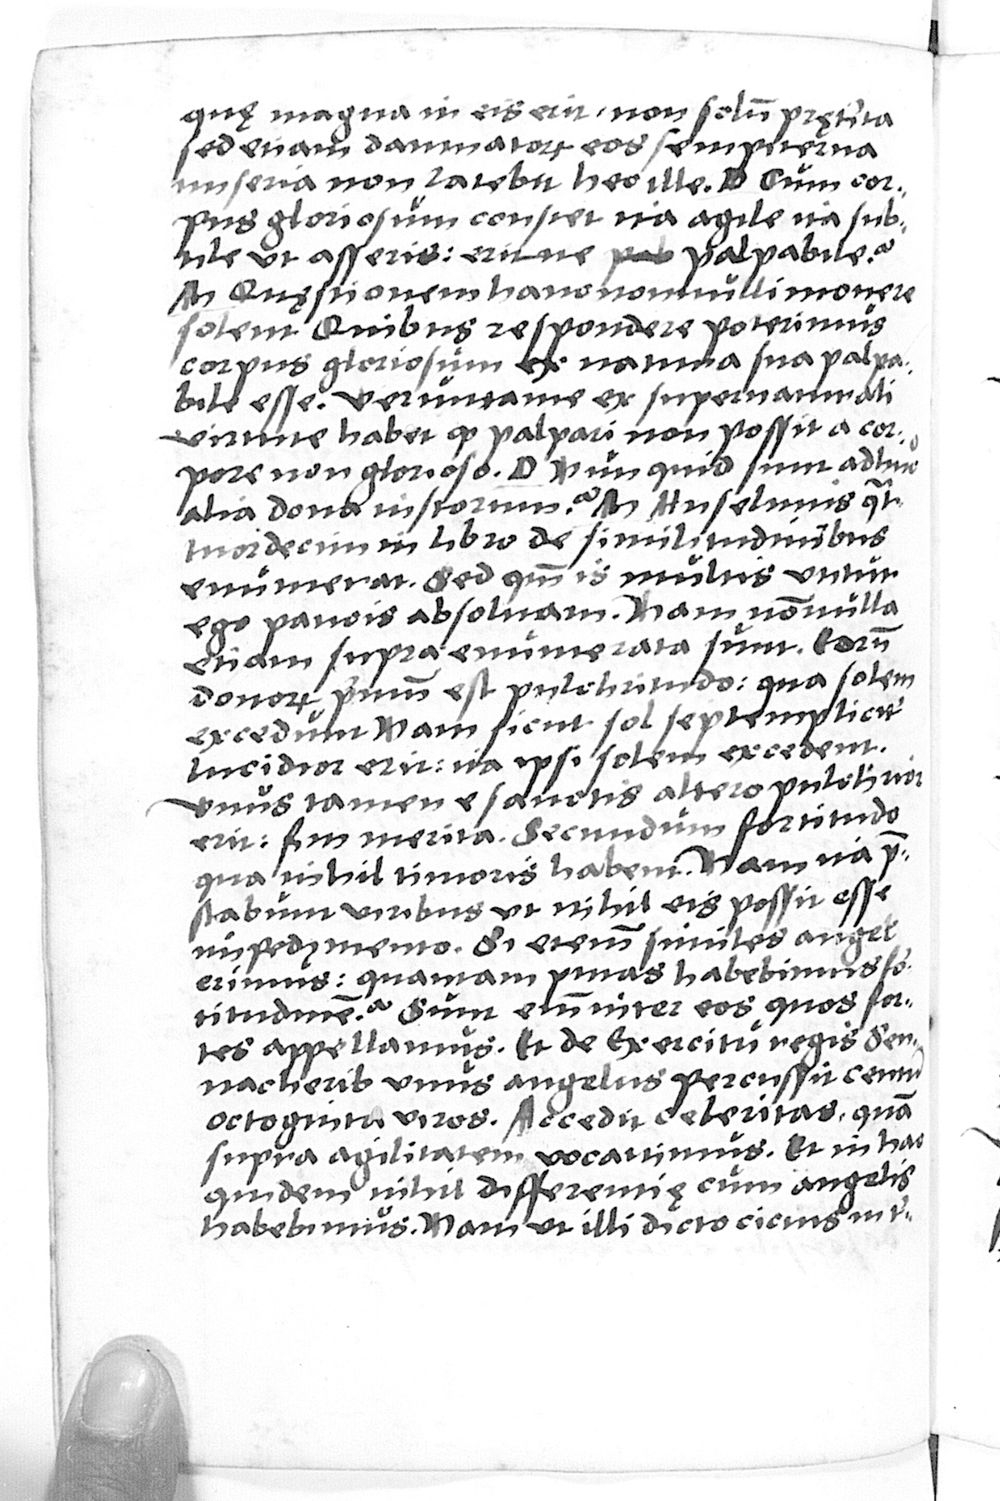 quę magna in eis erit, non solū pręt'ita
sed etiam damnatoꝝ eos sempiterna
miseria non latebit hec ille. D Cum cor-
pus gloriosum constet ita agile ita sub-
tile ut asseris: eritne palpabile?
M Quęstionem hanc nonnulli movere
solent Quibus respondere poterimus
corpus gloriosum ex natura sua palpa-
bile esse. veruntame ex supernaturali
virtute habet ꝙ palpari non possit a cor-
pore non glorioso. D Nunquid sunt adhuc
alia dona iustorum? M Anselmus q̄t-
tuordecim in libro de similitudinibus
enumerat. Sed qm̄ is multis utitur
ego paucis absolvam. Nam nōnulla
etiam supra enumerata sunt. Eorū
donoꝝ p'mū est pulchritudo: qua solem
excedunt Nam sicut sol septempliciter
lucidior erit: ita ipsi solem excedent.
vnus tamen e sanctis altero pulchrior
erit: sm merita. Secundum fortitudo
qua nihil timoris habent. Nam ita p̄-
stabunt viribus ut nihil eis possit esse
impedimento. Si etenī similes angel'
erimus: quantam putas habebimus for-
titudinē? Sunt enī inter eos quos for-
tes appellamus. Et de Exercitu regis Sen-
nacherib vnus angelus percussit centū
octoginta viros. Accedit celeritas, quā
supra agilitatem vocavimus. Et in hac
quidem nihil differentię cum angelis
habebimus. Nam ut illi dicto cicius int'-